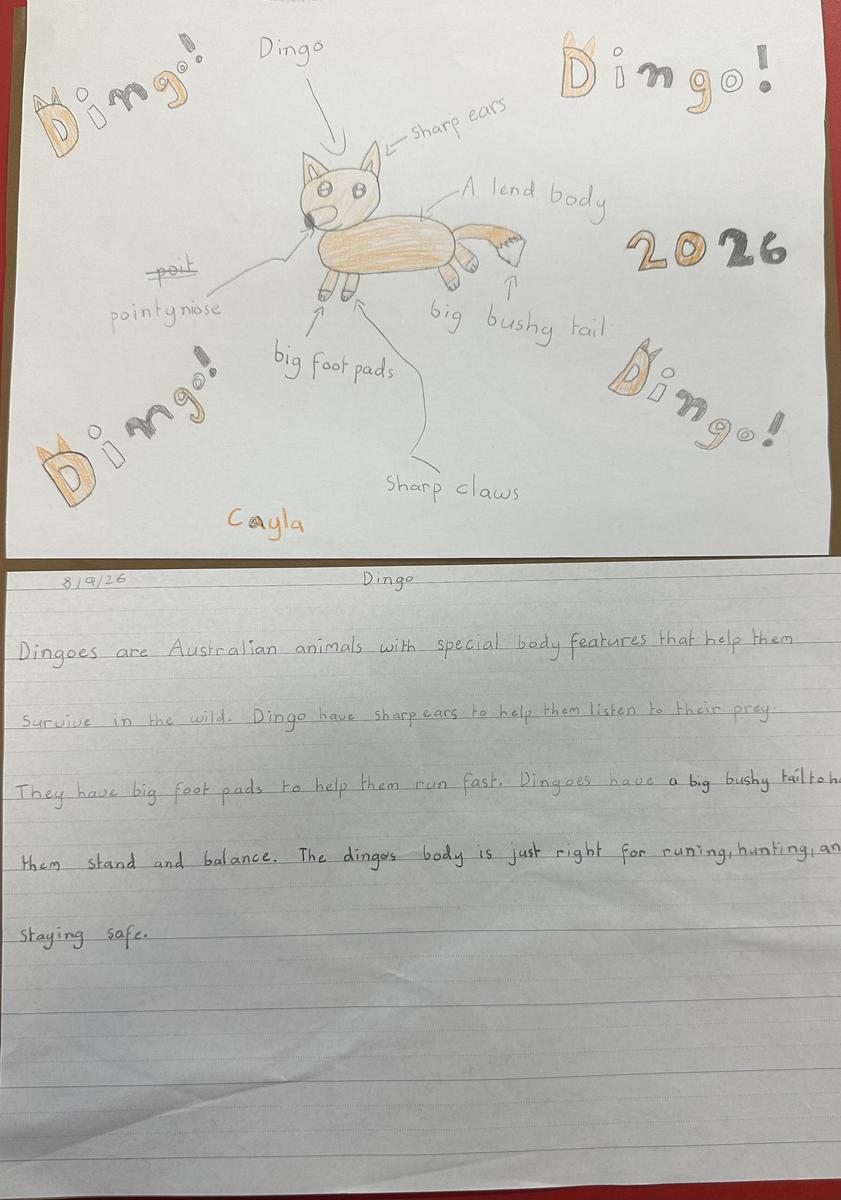 Dingo!
Dingo
Dingo!
sharp ears
A lend body
2026
poit
pointy niose
big bushy tail
big foot pads
Dingo!
Dingo!
Sharp claws
Cayla
8/9/26
Dingo
Dingoes are Australian animals with special body features that help them
Survive in the wild. Dingo have sharp ears to help them listen to their prey.
They have big foot pads to help them run fast. Dingoes have a big bushy tail to h
them stand and balance. The dingo's body is just right for runing, hunting, an
Staying safe.